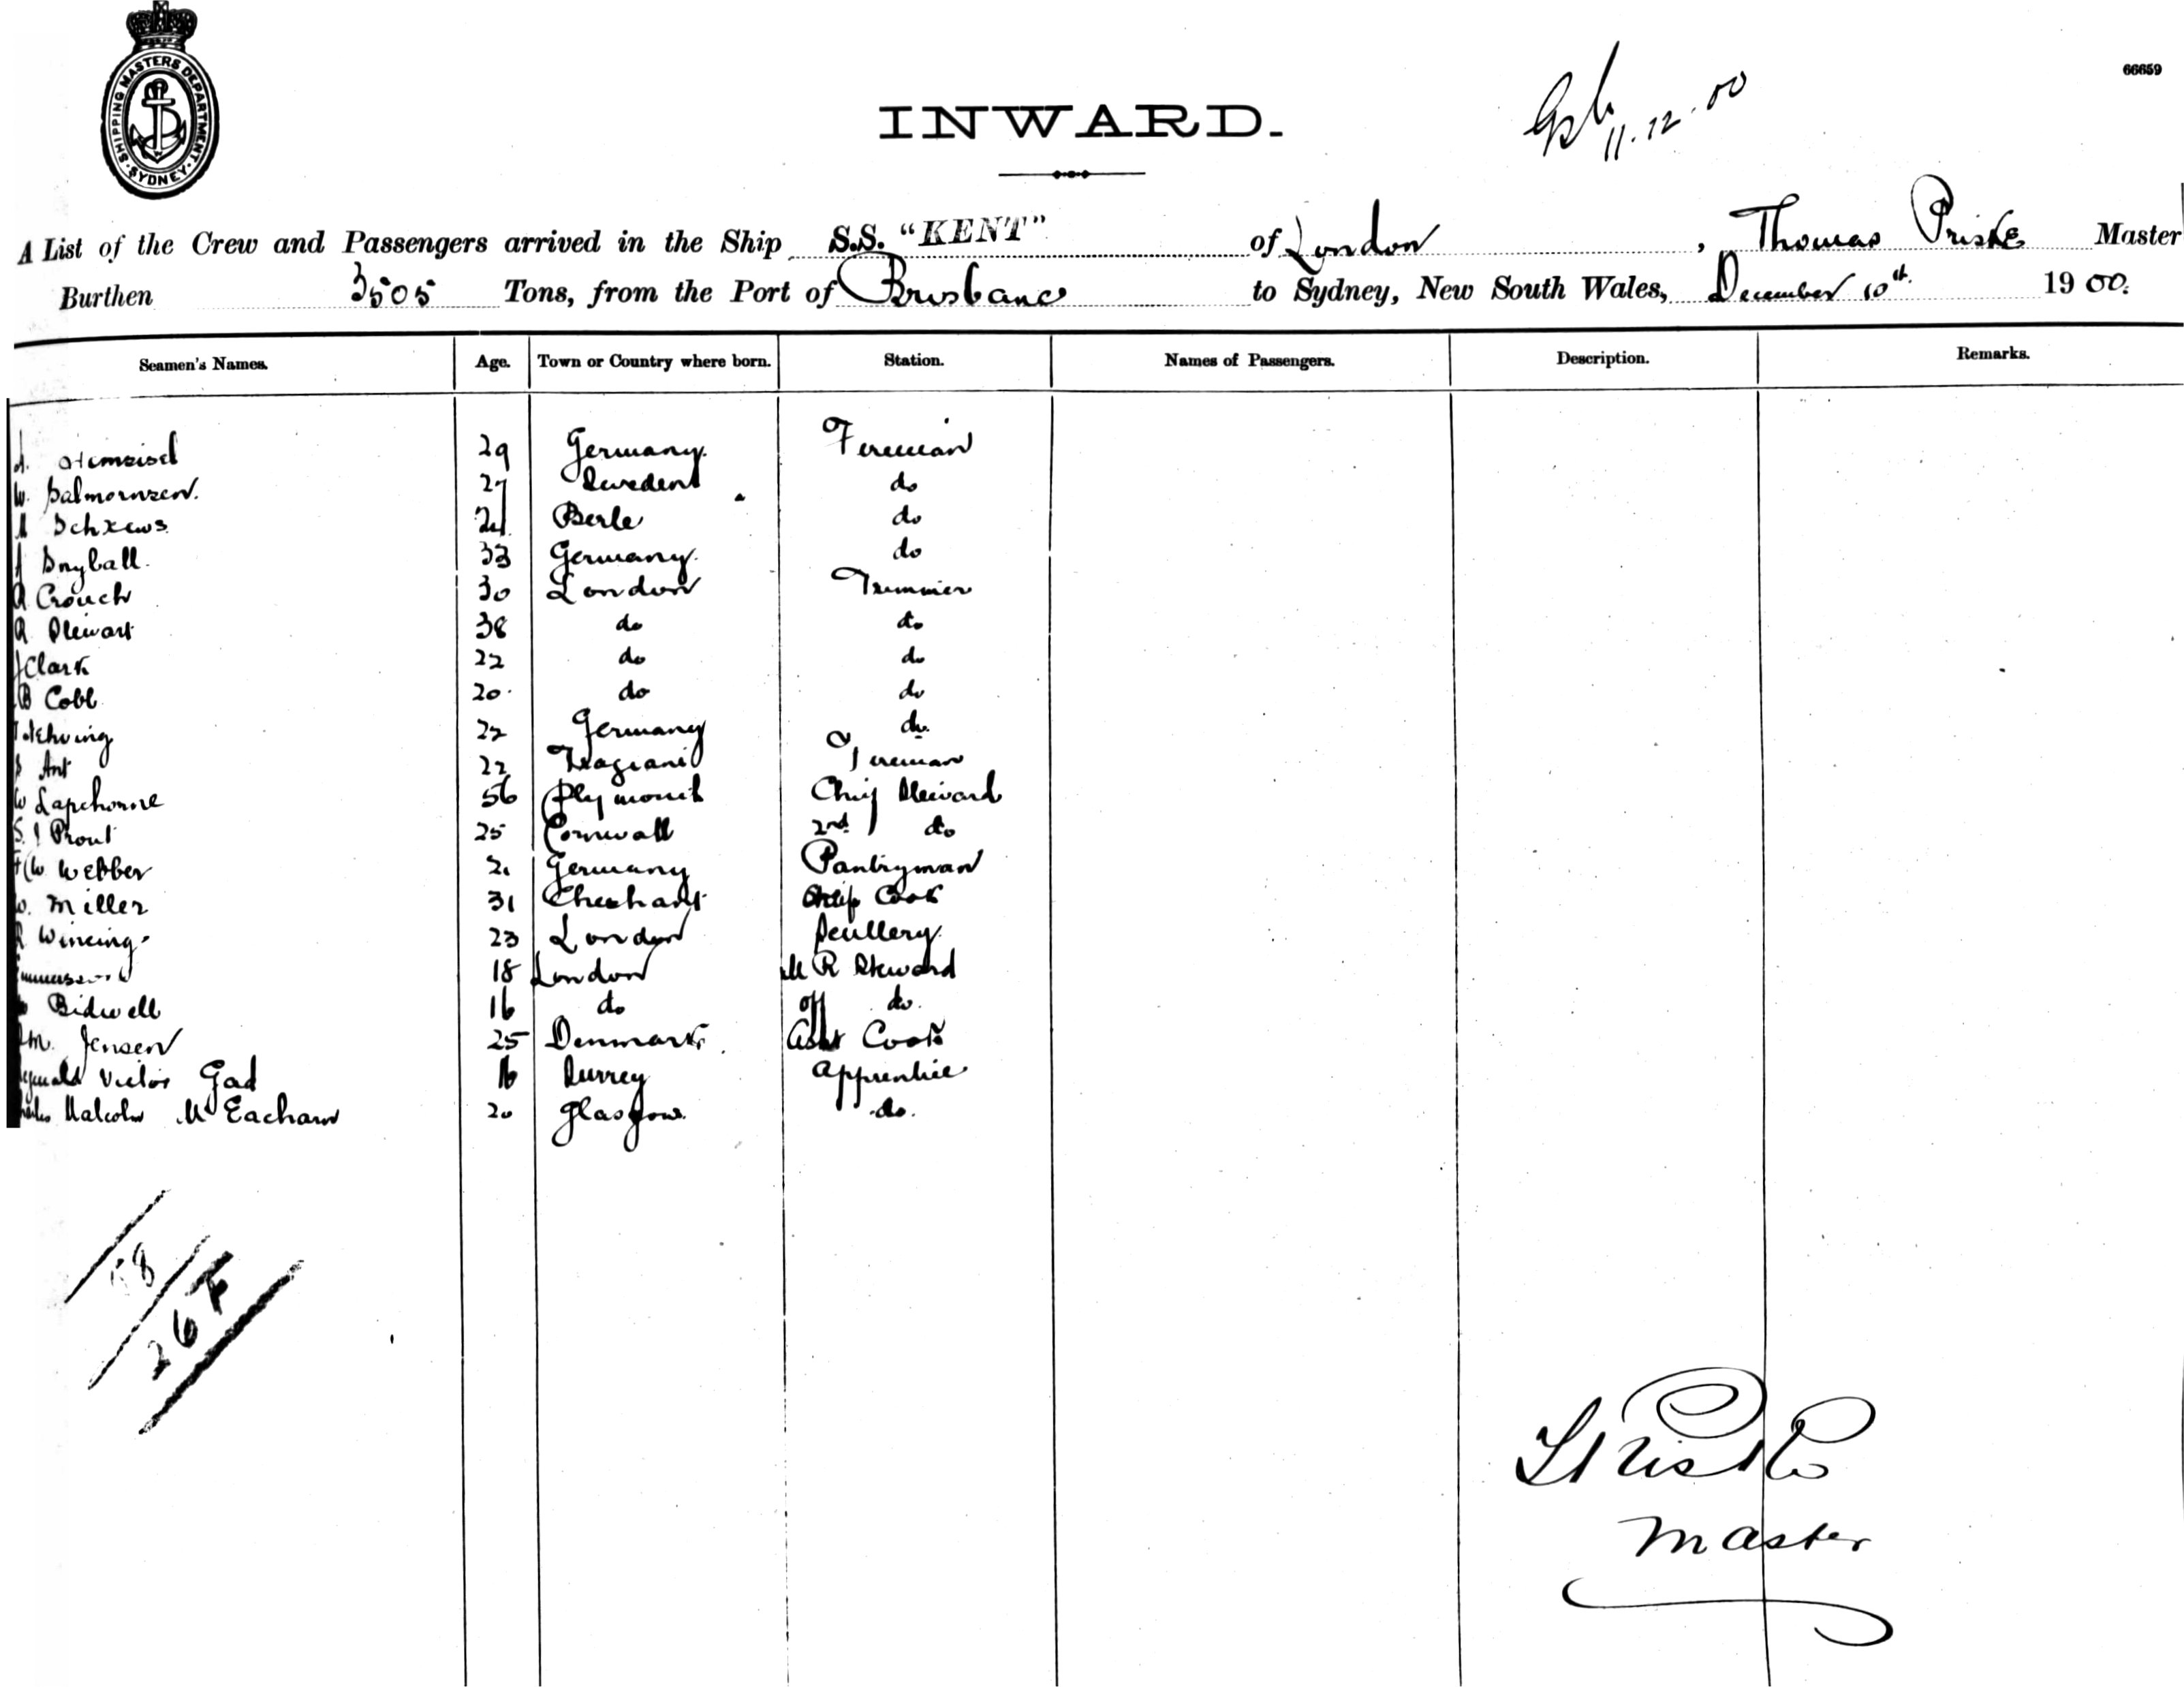 SHIPPING MASTERS DEPARTMENT. SYDNEY
66659
INWARD.
11.12.00
A List of the Crew and Passengers arrived in the Ship S.S. "KENT" of London, Thomas Priske Master
Burthen 3505 Tons, from the Port of Brisbane to Sydney, New South Wales, December 10th. 1900.
Seamen's Names. Age. Town or Country where born. Station. Names of Passengers. Description. Remarks.
29 Germany. Fireman
W. Salmornzen. 27 Sweden do
Berle do
Dryball. 33 Germany. do
A Crouch 30 London Trimmer
A Stewart 38 do do
J Clark 22 do do
B Cobb 20. do do
22 Germany do.
Ant 22 Fireman
W Lapthorne 56 Plymouth Chief Steward
S. J Prout 25 Cornwall 2nd do
W Webber 21 Germany Pantryman
W. Miller 31 Ships Cook
Wincing. 23 London Scullery.
18 London M R Steward
Bidwell 16 do off do.
M. Jensen 25 Denmark. Asst Cook
Victor Gad 16 Surrey Apprentice
Malcolm Mc Eacharn 20 Glasgow. do.
58
26 F
T Priske
Master